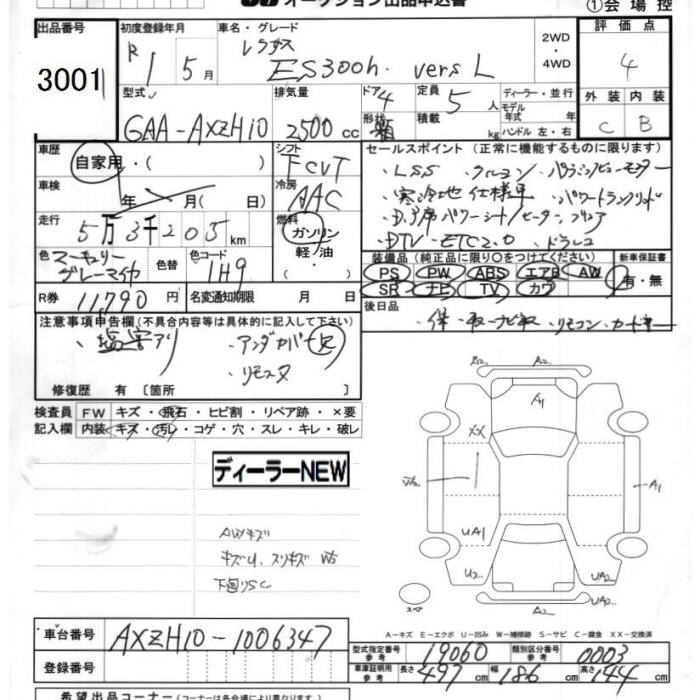 オークション出品申込書
①会場控
出品番号 初度登録年月 車名・グレード 2WD ・ 4WD 評価点
3001 R1 5月 レクサス ES300h. vers L 4
型式 排気量 ドア 4 定員 5人 ディーラー・並行 外装 内装
GAA-AXZH10 2500cc 形状 箱 積載 kg モデル年式 年 ハンドル 左・右 C B
車歴 シフト セールスポイント (正常に機能するものに限ります)
自家用・( ) FCVT ・LSS ・クルコン ・パノラミックビューモニター
車検 年 月( 日) 冷房 AAC ・寒冷地仕様車 ・パワートランクリッド
走行 5万3千205km 燃料 ガソリン 軽油・
・DTV ・ETC2.0 ・ドラレコ
色 マーキュリーグレーマイカ 色替 色コード 1H9 装備品 (純正品に限り○をつけてください) 新車保証書
PS PW ABS エアB AW 有・無
SR ナビ TV カワ
R券 11790円 名変通知期限 月 日 後日品
・保・取・ナビ取・リモコン・カードキー
注意事項申告欄 (不具合内容等は具体的に記入して下さい)
・塩害アリ ・アンダーカバー欠
修復歴 有 〔箇所 〕
検査員 FW キズ・飛石・ヒビ割・リペア跡・×要
記入欄 内装 キズ・汚レ・コゲ・穴・スレ・キレ・破レ
ディーラーNEW
A12 A2
A1
XX
W2 A1
UA1
U2 UA2 UA2
A2
スペア
AWキズ
キズU、スリキズ W5
下廻りSC
A-キズ E-エクボ U-凹み W-補修跡 S-サビ C-腐食 XX-交換済
車台番号 AXZH10-1006347 型式指定番号 参考 19060 類別区分番号 参考 0003
登録番号 車庫証明用 参考 長さ 497cm 幅 186cm 高さ 144cm
希望出品コーナー